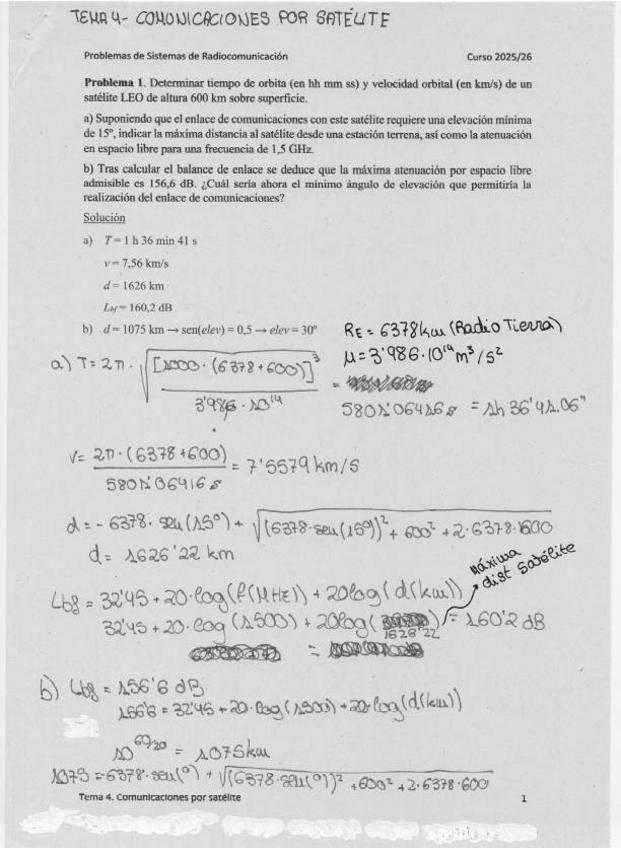 TEMA 4- COMUNICACIONES POR SATÉLITE
Problemas de Sistemas de Radiocomunicación Curso 2025/26
Problema 1. Determinar tiempo de orbita (en hh mm ss) y velocidad orbital (en km/s) de un
satélite LEO de altura 600 km sobre superficie.
a) Suponiendo que el enlace de comunicaciones con este satélite requiere una elevación mínima
de 15º, indicar la máxima distancia al satélite desde una estación terrena, así como la atenuación
en espacio libre para una frecuencia de 1,5 GHz.
b) Tras calcular el balance de enlace se deduce que la máxima atenuación por espacio libre
admisible es 156,6 dB. ¿Cuál sería ahora el mínimo ángulo de elevación que permitiría la
realización del enlace de comunicaciones?
Solución
a) T = 1 h 36 min 41 s
v = 7,56 km/s
d = 1626 km
Lbf = 160,2 dB
b) d = 1075 km → sen(elev) = 0,5 → elev = 30º
RE = 6378 km (Radio Tierra)
μ = 3'986·10¹⁴ m³/s²
a) T = 2π · √([1000·(6378+600)]³ / 3'986·10¹⁴) = 5801'06416 s = 1h 36' 41.06"
V = 2π·(6378+600) / 5801'06416 s = 7'5579 km/s
d = - 6378· sen(15º) + √((6378·sen(15º))² + 600² + 2·6378·600
d = 1626'22 km
Máxima
dist satélite
Lbf = 32'45 + 20·log(f(MHz)) + 20log(d(km))
32'45 + 20·log (1500) + 20log( 1626'22 ) = 160'2 dB
b) Lbf = 156'6 dB
156'6 = 32'45 + 20·log(1500) + 20·log(d(km))
10^60/20 = 1075km
1075 = 6378·sen(º) + √(6378·sen(º))² + 600² + 2·6378·600
Tema 4. Comunicaciones por satélite 1